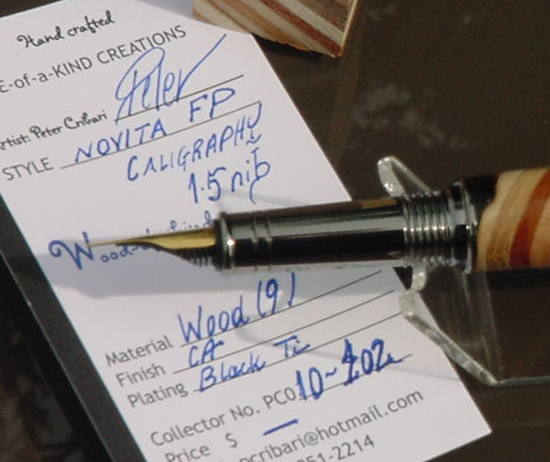 Hand crafted
E-of-a-KIND CREATIONS
Artist: Peter Cribari Peter
STYLE NOVITA FP
CALIGRAPHY
1.5 nib
Wood
Material Wood (9)
Finish CA
Plating Black Ti
Collector No. PC010-
Price $ —
pcribari@hotmail.com
51-2214